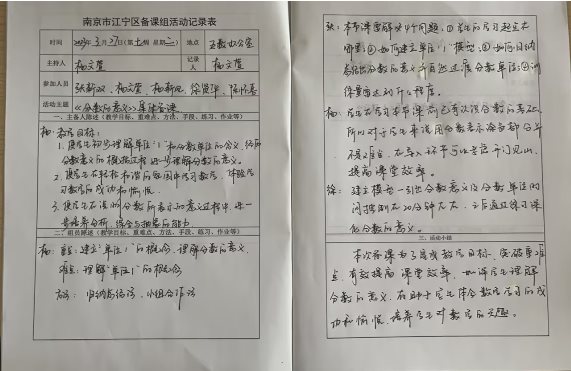 南京市江宁区备课组活动记录表
时间 2023年3月27日(第七周 星期二) 地点 五数办公室
主持人 杨文萱 记录人 杨文萱
参加人员 张新双、杨文萱、杨新凤、徐贤华、陈怀春
活动主题 《分数的意义》集体备课
一、主备人陈述（教学目标、重难点、方法、手段、练习、作业等）
杨：教学目标：
1. 使学生初步理解单位"1"和分数单位的含义，经历
分数意义的概括过程，进一步理解分数的意义。
2. 使学生在轻松和谐的氛围中学习数学，体验学
习数学的成功和愉悦。
3. 使学生在说明分数所表示的意义过程中，进一
步培养分析、综合与抽象的能力
二、组员陈述（教学目标、重难点、方法、手段、练习、作业等）
杨：重点：建立单位"1"的概念，理解分数的意义。
难点：理解"单位1"的概念
方法：归纳总结法，小组合作法
张：本节课要解决4个问题，①学生的学习起点在
哪里；②如何建立单位"1"模型；③如何归纳
总结出分数的意义并自然过渡分数单位；④训
练要达到什么程度。
杨：学生在学习本节课前已有认识分数的基础，
所以对于学生来说用分数表示涂色部分并
不是难点，在导入环节可以尝试开门见山，
提高课堂效率。
徐：建立模型—引出分数意义及分数单位时
间控制在20分钟左右，之后通过练习深
化分数的意义。
三、活动小结
本次备课为了达成教学目标，突破重难
点，有效提高课堂效率，如让学生理解
分数的意义，有助于学生体会数学学习的成
功和愉悦，培养学生对数学的兴趣。